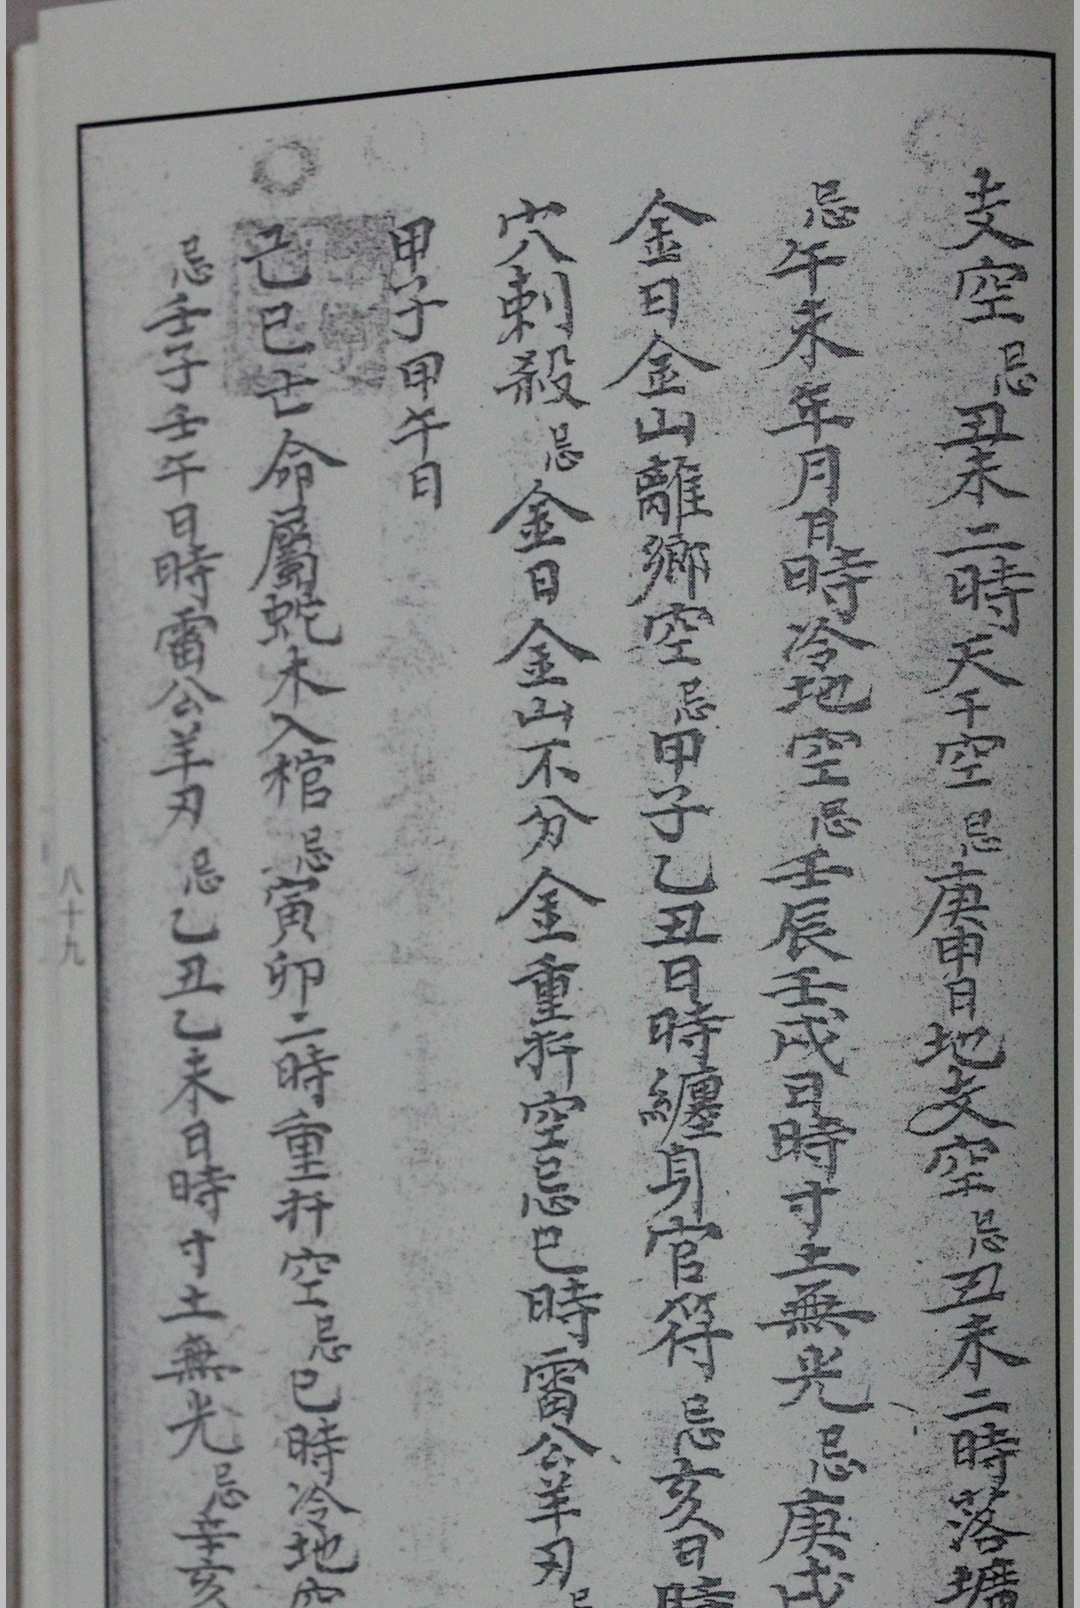 支空忌丑未二時天干空忌庚申日地支空忌丑未二時落壙
忌午未年月日時冷地空忌壬辰壬戌日時寸土無光忌庚戌
金日金山離鄉空忌甲子乙丑日時纏身官符忌亥日時
穴刺殺忌金日金山不分金重拆空忌巳時雷公羊刃忌
甲子甲午日
己巳亡命屬蛇木入棺忌寅卯二時重拆空忌巳時冷地空
忌壬子壬午日時雷公羊刃忌乙丑乙未日時寸土無光忌辛亥
八十九